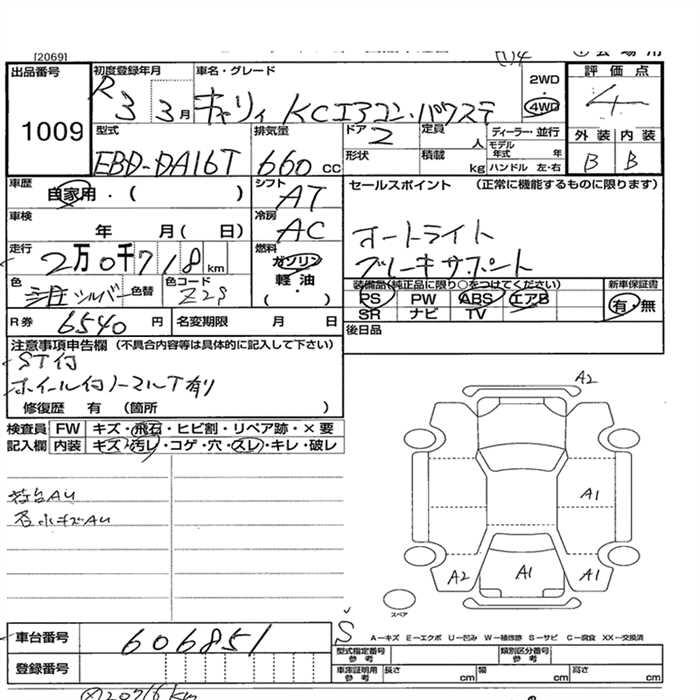 [2069]
出品番号
1009
初度登録年月
R 3 3月
車名・グレード
キャリィ KCエアコン・パワステ
2WD
4WD
評価点
4
外装 内装
B B
型式
EBD-DA16T
排気量
660 cc
ドア 2
定員 人
形状
積載 kg
ディーラー・並行
モデル年式 年
ハンドル 左・右
車歴
自家用・( )
シフト AT
車検
年 月( 日)
冷房 AC
走行
2万0千718 km
燃料
ガソリン
軽油
( )
色 シルバー
色替
色コード Z2S
R券 6540 円
名変期限 月 日
セールスポイント (正常に機能するものに限ります)
オートライト
ブレーキサポート
装備品(純正品に限り○をつけてください)
新車保証書
PS PW ABS エアB
有・無
SR ナビ TV
後日品
注意事項申告欄 (不具合内容等は具体的に記入して下さい)
ST付
ホイール付ノーマルT有り
修復歴 有 (箇所 )
検査員 FW キズ・飛石・ヒビ割・リペア跡・×要
記入欄 内装 キズ・汚レ・コゲ・穴・スレ・キレ・破レ
荷台AU
各小キズAU
A2
A1
A2
A1
A1
スペア
A–キズ E–エクボ U–凹み W–補修跡 S–サビ C–腐食 XX–交換済
車台番号 606851
登録番号
型式指定番号 参考
類別区分番号 参考
車庫証明用 参考
長さ cm
幅 cm
高さ cm